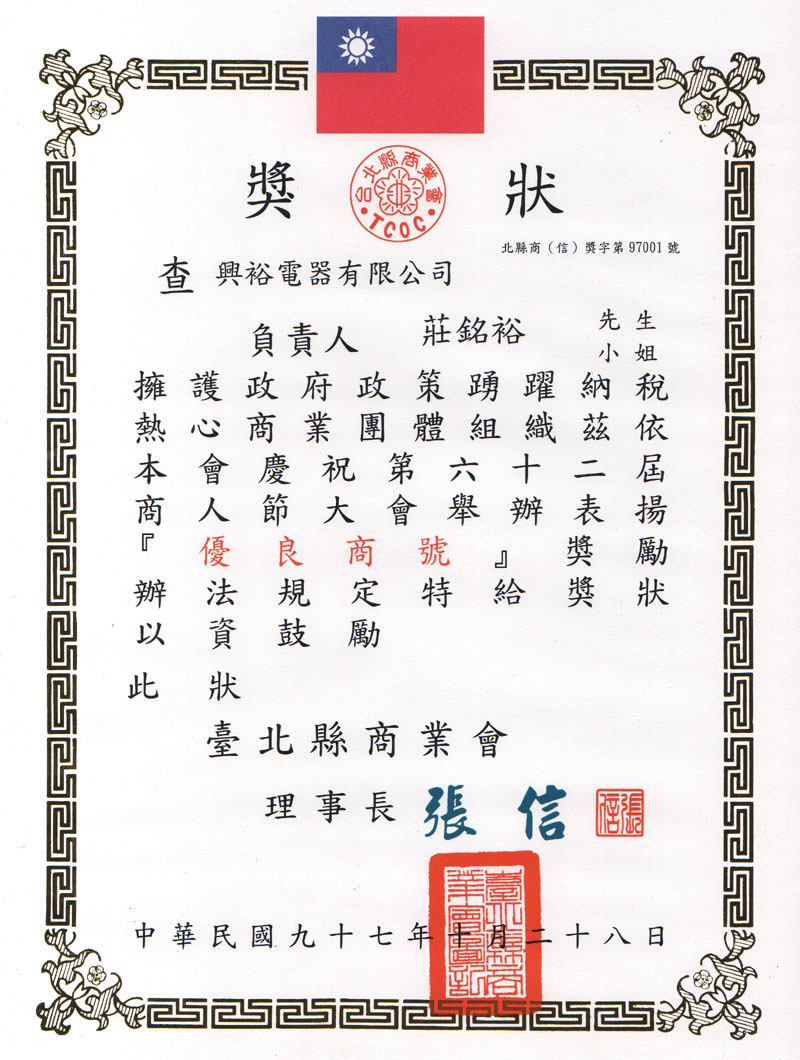 獎 狀
台北縣商業會
TCOC
北縣商（信）獎字第97001號
查 興裕電器有限公司
負責人 莊銘裕 先生
小姐
擁護政府政策踴躍納稅
熱心商業團體組織茲依
本會慶祝第六十二屆
商人節大會舉辦表揚
『優良商號』獎勵
辦法規定特給獎狀
以資鼓勵
此狀
臺北縣商業會
理事長 張信
張信
中華民國九十七年十月二十八日